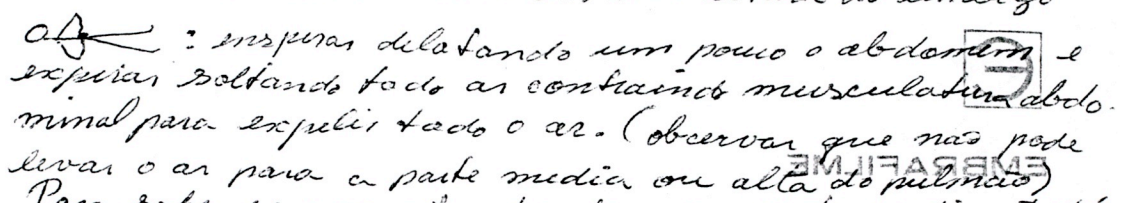 : inspirar dilatando um pouco o abdomem e
expirar soltando todo ar contraindo musculatura abdo-
minal para expelir todo o ar. (observar que não pode
levar o ar para a parte media ou alta do pulmão)
EMBRAFILME
Para